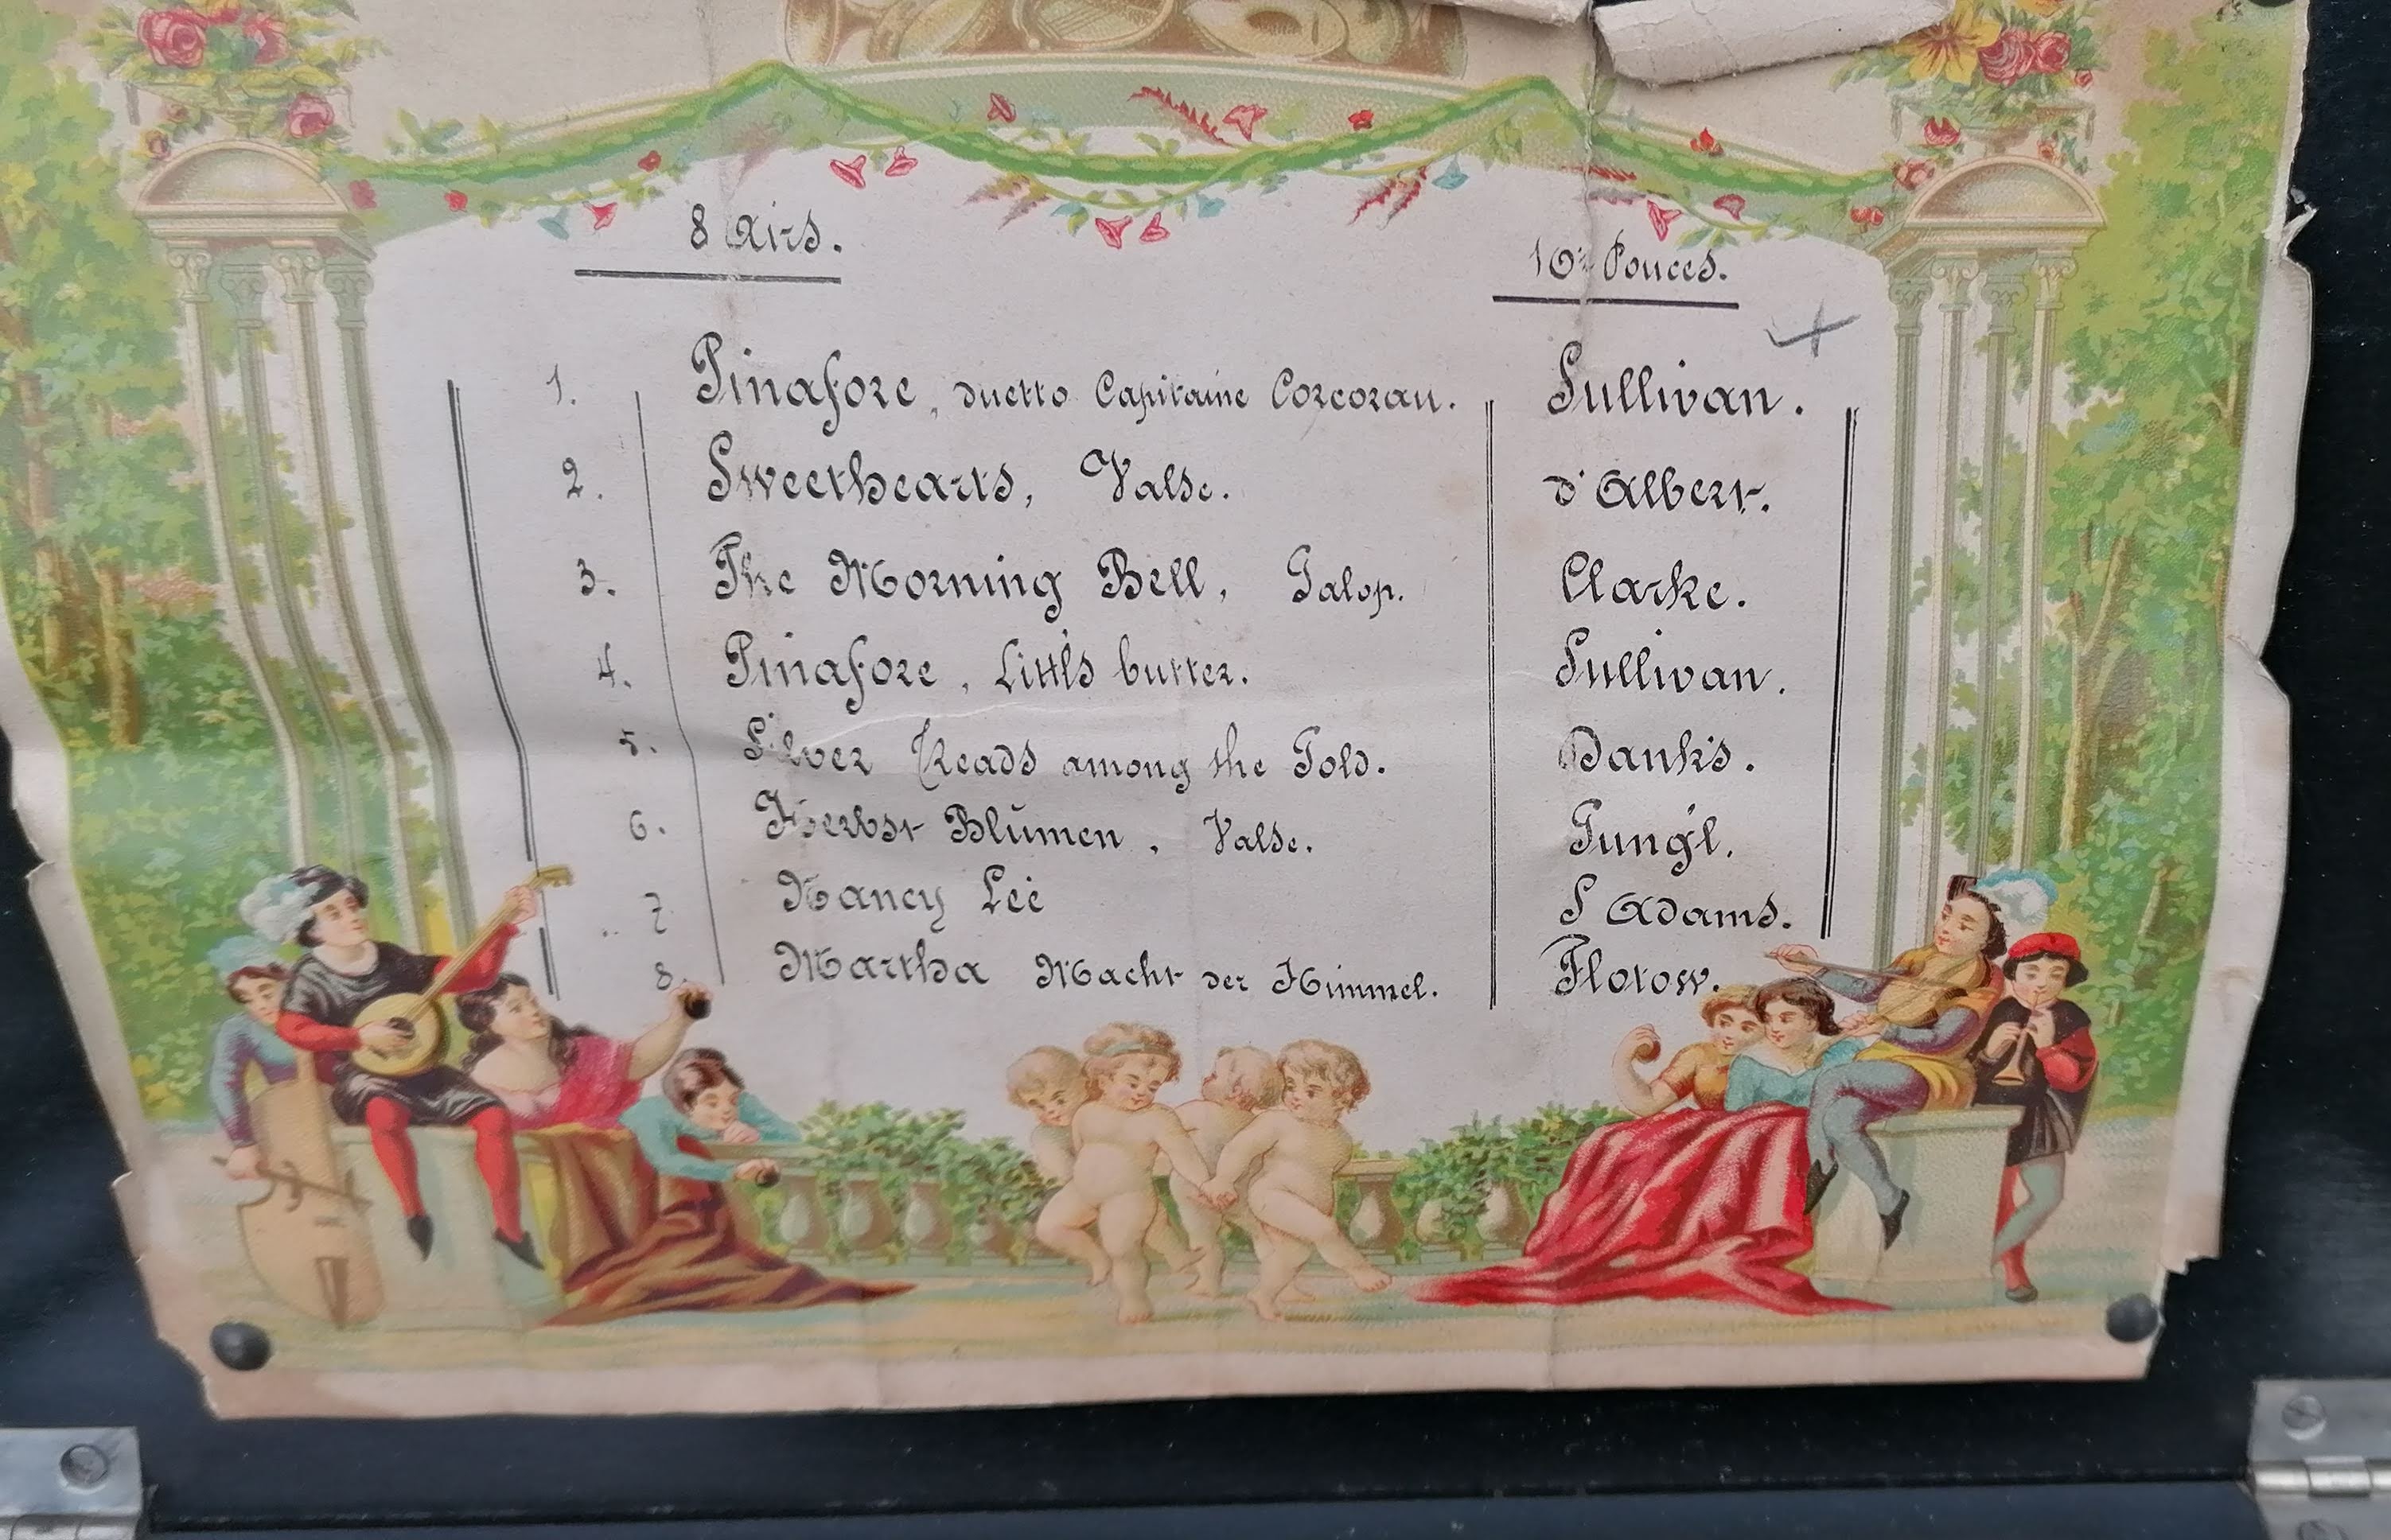 8 Airs.
10½ Pouces.
1. Pinafore, duetto Capitaine Corcoran. Sullivan.
2. Sweethearts, Valse. d'Albert.
3. The Morning Bell, Galop. Clarke.
4. Pinafore, Littl's butter. Sullivan.
5. Silver Reads among the Gold. Danks.
6. Herbst Blumen, Valse. Gung'l.
7 Nancy Lee S Adams.
8. Martha Macht der Himmel. Flotow.